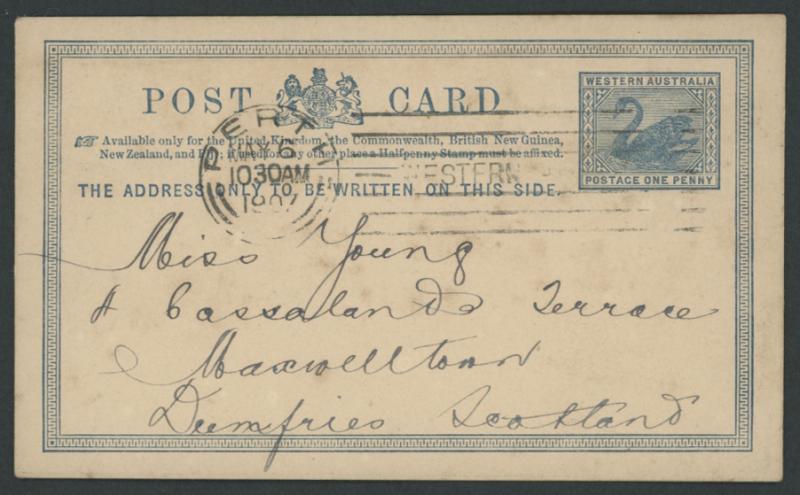 WESTERN AUSTRALIA
POST CARD
Available only for the United Kingdom, the Commonwealth, British New Guinea,
New Zealand, and Fiji; if used for any other place a Halfpenny Stamp must be affixed.
POSTAGE ONE PENNY
THE ADDRESS ONLY TO BE WRITTEN ON THIS SIDE.
PERTH
6
10 30 AM
WESTERN
Miss Young
Cassalands Terrace
Maxwelltown
Dumfries Scotland